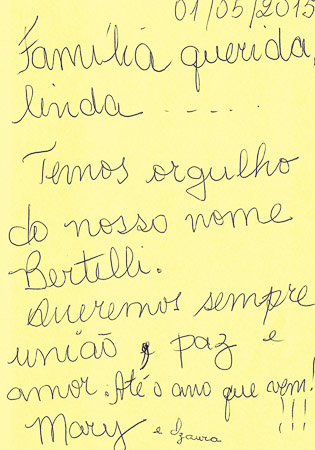 01/05/2015
Família querida,
linda .....
Temos orgulho
do nosso nome
Bertelli.
Queremos sempre
união, paz e
amor. Até o ano que vem!
Mary e Izaura !!!